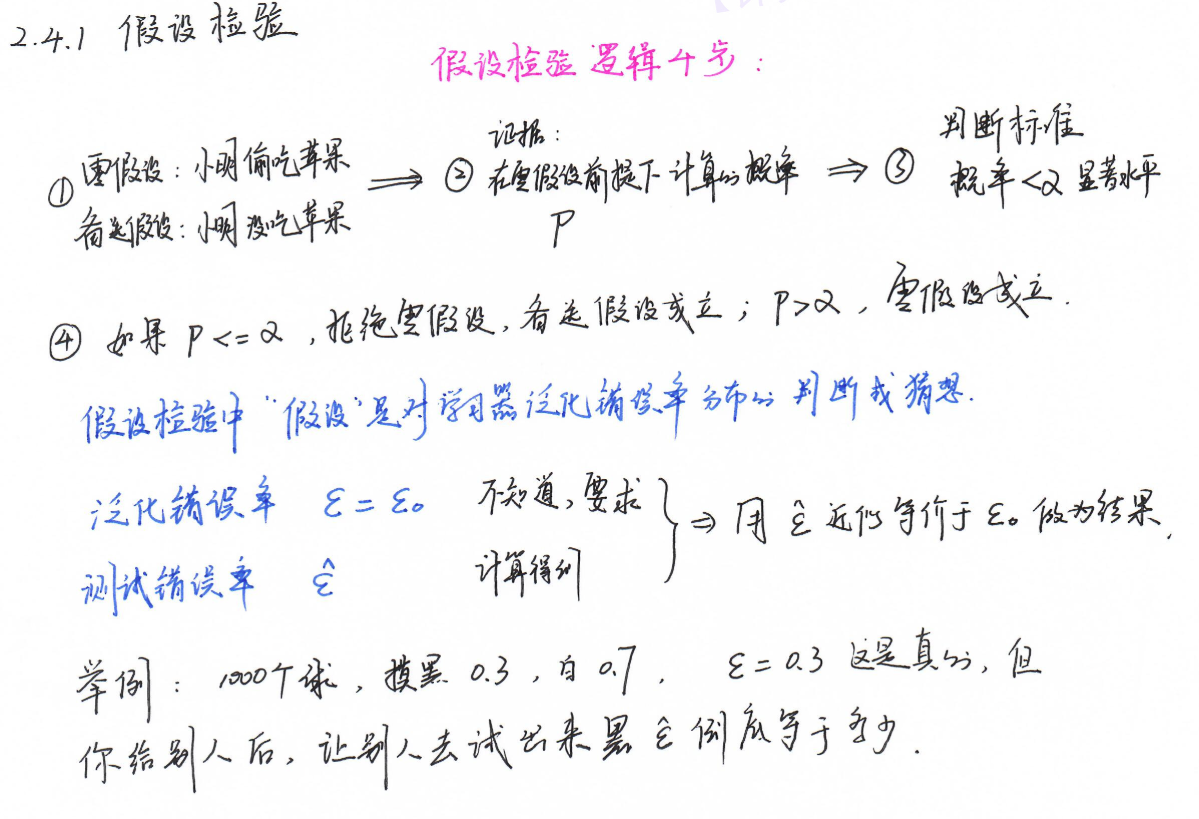 2.4.1 假设检验
假设检验逻辑4步:
① 零假设: 小明偷吃苹果
备选假设: 小明没吃苹果
⇒ ② 证据:
在零假设前提下计算的概率
P
⇒ ③ 判断标准
概率<α 显著水平
④ 如果 P<=α, 拒绝零假设, 备选假设成立; P>α, 零假设成立.
假设检验中“假设”是对学习器泛化错误率分布的判断或猜想.
泛化错误率 ε=ε₀ 不知道, 要求
测试错误率 ε̂ 计算得到
⇒ 用 ε̂ 近似等价于 ε₀ 做为结果.
举例: 1000个球, 摸黑 0.3, 白 0.7, ε=0.3 这是真的, 但
你给别人后, 让别人去试出来黑 ε̂ 倒底等于多少.